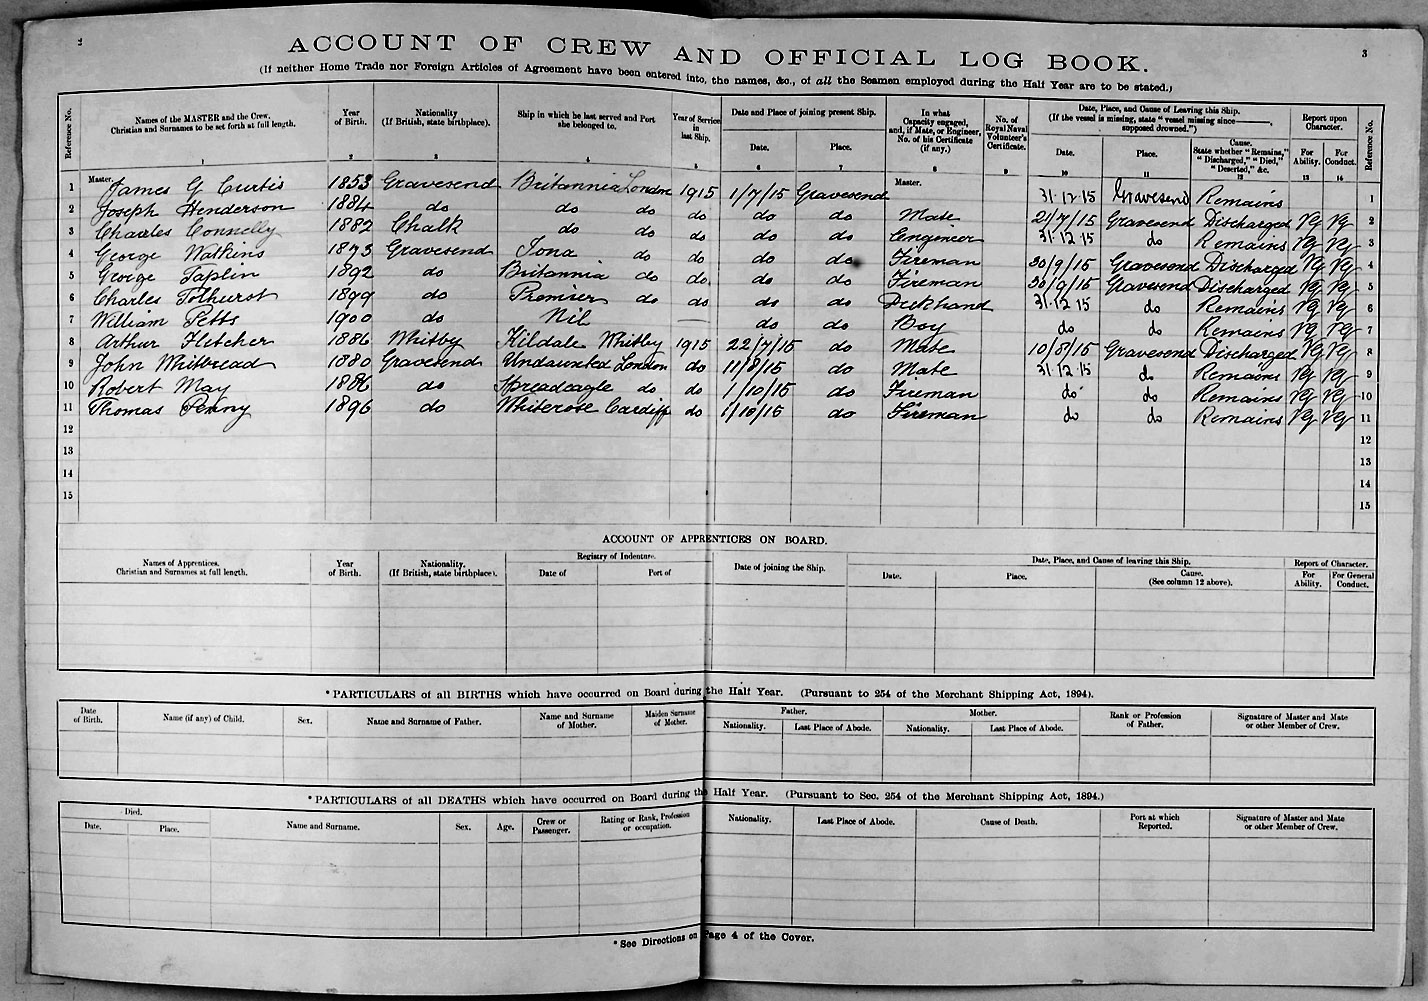 2
3
ACCOUNT OF CREW AND OFFICIAL LOG BOOK.
(If neither Home Trade nor Foreign Articles of Agreement have been entered into, the names, &c., of all the Seamen employed during the Half Year are to be stated.)
Reference No. Names of the MASTER and the Crew. Christian and Surnames to be set forth at full length. Year of Birth. Nationality (If British, state birthplace). Ship in which he last served and Port she belonged to. Year of Service in last Ship. Date and Place of joining present Ship. Date. Place. In what Capacity engaged, and, if Mate, or Engineer, No. of his Certificate (if any.) No. of Royal Naval Volunteer's Certificate. Date, Place, and Cause of Leaving this Ship. (If the vessel is missing, state "vessel missing since ———, supposed drowned.") Date. Place. Cause. State whether "Remains," "Discharged," "Died," "Deserted," &c. Report upon Character. For Ability. For Conduct. Reference No.
1 2 3 4 5 6 7 8 9 10 11 12 13 14
1 Master. James G Curtis 1853 Gravesend Britannia London 1915 1/7/15 Gravesend Master. 31.12.15 Gravesend Remains 1
2 Joseph Henderson 1884 do do do do do do Mate 21/7/15 Gravesend Discharged VG VG 2
3 Charles Connelly 1882 Chalk do do do do do Engineer 31.12.15 do Remains VG VG 3
4 George Watkins 1873 Gravesend Iona do do do do Fireman 30/9/15 Gravesend Discharged VG VG 4
5 George Taplin 1892 do Britannia do do do do Fireman 30/9/15 Gravesend Discharged VG VG 5
6 Charles Tolhurst 1899 do Premier do do do do Deckhand 31.12.15 do Remains VG VG 6
7 William Petts 1900 do Nil — do do Boy do do Remains VG VG 7
8 Arthur Fletcher 1886 Whitby Kildale Whitby 1915 22/7/15 do Mate 10/8/15 Gravesend Discharged VG VG 8
9 John Whitbread 1880 Gravesend Undaunted London do 11/8/15 do Mate 31.12.15 do Remains VG VG 9
10 Robert May do Spreadeagle do do 1/10/15 do Fireman do do Remains VG VG 10
11 Thomas Penny 1896 do Whiterose Cardiff do 1/10/15 do Fireman do do Remains VG VG 11
12 12
13 13
14 14
15 15
ACCOUNT OF APPRENTICES ON BOARD.
Names of Apprentices. Christian and Surnames at full length. Year of Birth. Nationality. (If British, state birthplace). Registry of Indenture. Date of Port of Date of joining the Ship. Date, Place, and Cause of leaving this Ship. Date. Place. Cause. (See column 12 above). Report of Character. For Ability. For General Conduct.
*PARTICULARS of all BIRTHS which have occurred on Board during the Half Year. (Pursuant to 254 of the Merchant Shipping Act, 1894).
Date of Birth. Name (if any) of Child. Sex. Name and Surname of Father. Name and Surname of Mother. Maiden Surname of Mother. Father. Nationality. Last Place of Abode. Mother. Nationality. Last Place of Abode. Rank or Profession of Father. Signature of Master and Mate or other Member of Crew.
*PARTICULARS of all DEATHS which have occurred on Board during the Half Year. (Pursuant to Sec. 254 of the Merchant Shipping Act, 1894.)
Died. Date. Place. Name and Surname. Sex. Age. Crew or Passenger. Rating or Rank, Profession or occupation. Nationality. Last Place of Abode. Cause of Death. Port at which Reported. Signature of Master and Mate or other Member of Crew.
*See Directions on Page 4 of the Cover.